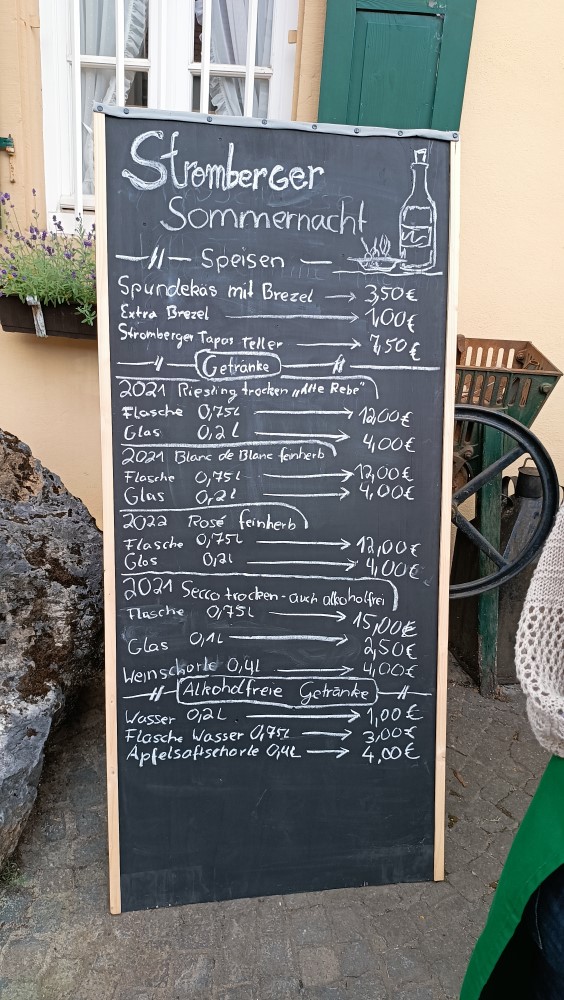 Stromberger
Sommernacht
Speisen
Spundekäs mit Brezel → 3,50€
Extra Brezel → 1,00€
Stromberger Tapas Teller → 7,50€
Getränke
2021 Riesling trocken „Alte Rebe"
Flasche 0,75l → 12,00€
Glas 0,2l → 4,00€
2021 Blanc de Blanc feinherb
Flasche 0,75l → 12,00€
Glas 0,2l → 4,00€
2022 Rosé feinherb
Flasche 0,75l → 12,00€
Glas 0,2l → 4,00€
2021 Secco trocken - auch alkoholfrei
Flasche 0,75l → 15,00€
Glas 0,1l → 2,50€
Weinschorle 0,4l → 4,00€
Alkoholfreie Getränke
Wasser 0,2l → 1,00€
Flasche Wasser 0,75l → 3,00€
Apfelsaftschorle 0,4l → 4,00€